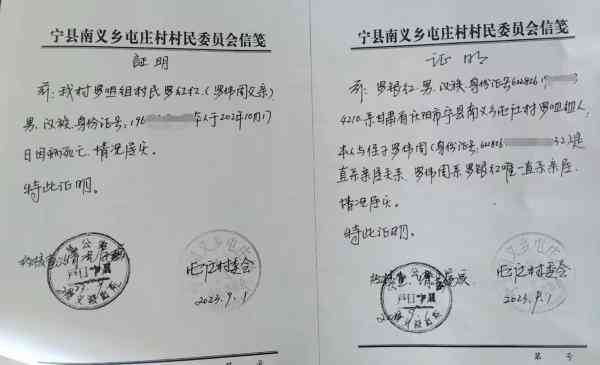 宁县南义乡屯庄村村民委员会信笺
证明
兹：我村罗咀组村民罗红红，（罗伟周父亲）
男、汉族、身份证号：196 本人于2021年10月17
日因病死亡、情况属实。
特此证明。
情况属实
屯庄村委会
2023.9.1
宁县南义乡屯庄村村民委员会信笺
证明
兹：罗银红、男、汉族、身份证号622826
4210.系甘肃省庆阳市宁县南义乡屯庄村罗咀组人，
本人与侄子罗伟周（身份证号、622826 32）是
直系亲属关系、罗伟周系罗银红唯一直系亲属、
情况属实。
特此证明。
屯庄村委会
2023.9.1
第 号